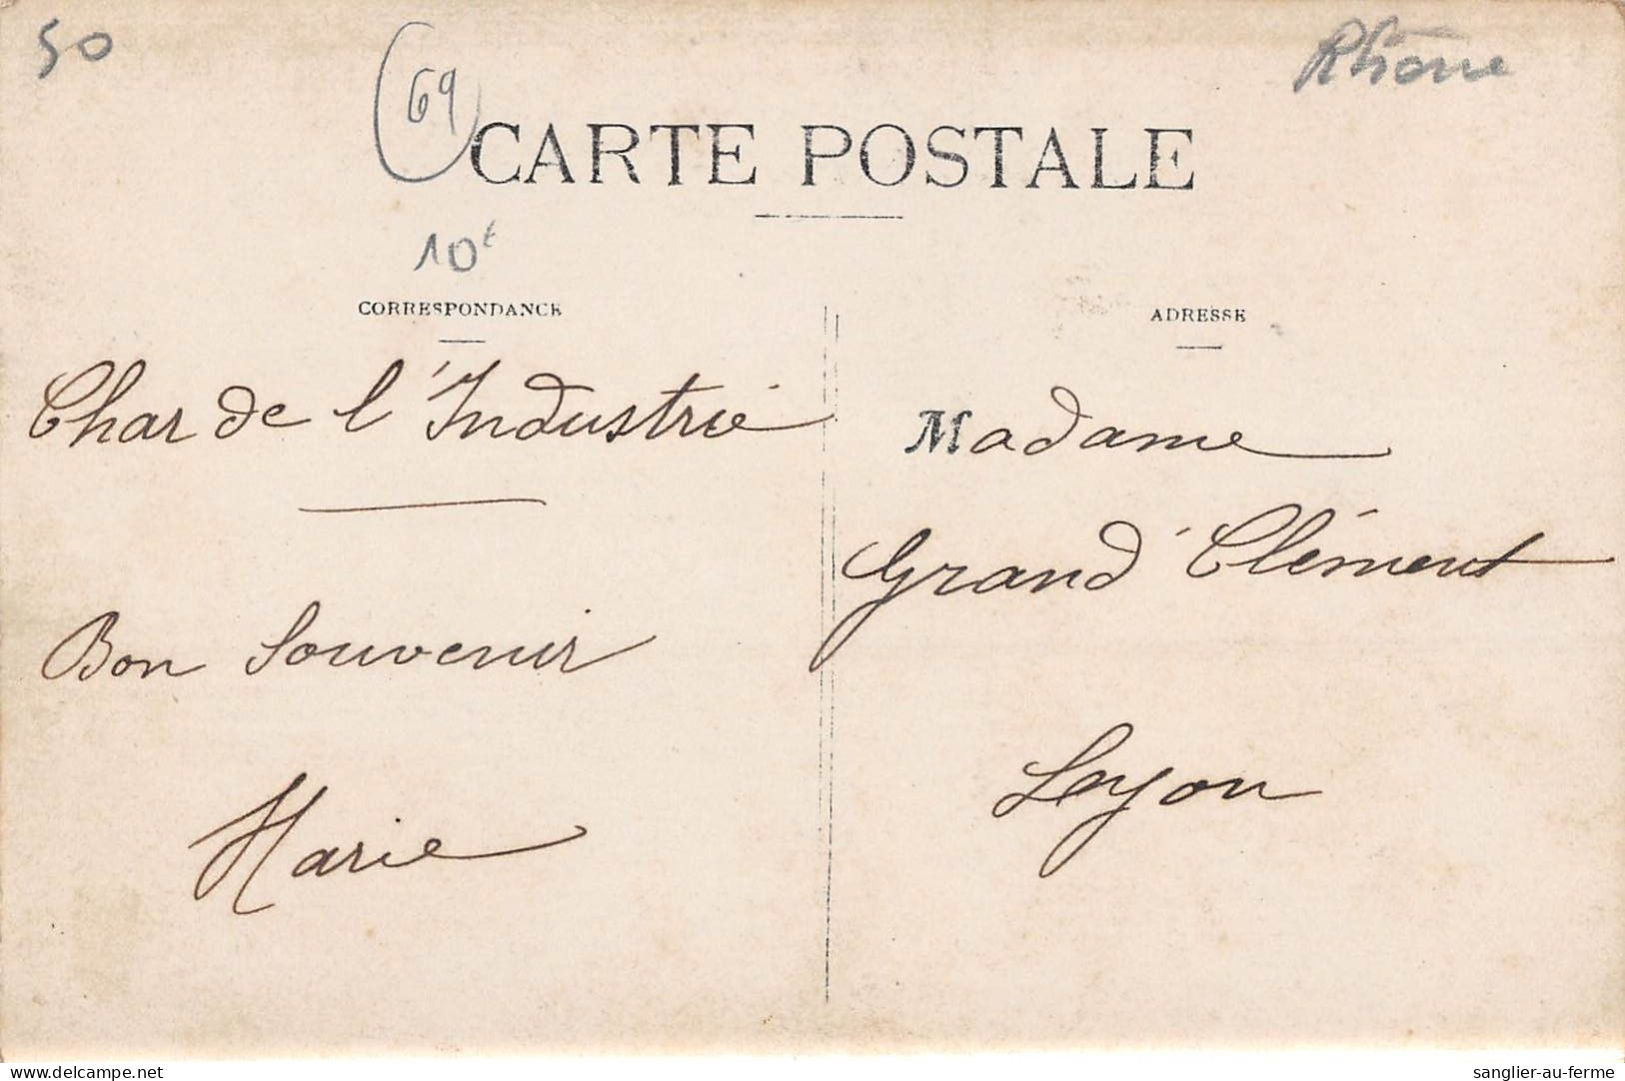 50
69
Rhône
CARTE POSTALE
10€
CORRESPONDANCE
ADRESSE
Char de l'Industrie
Bon Souvenir
Marie
Madame
Grand' Clément
Lyon
sanglier-au-ferme